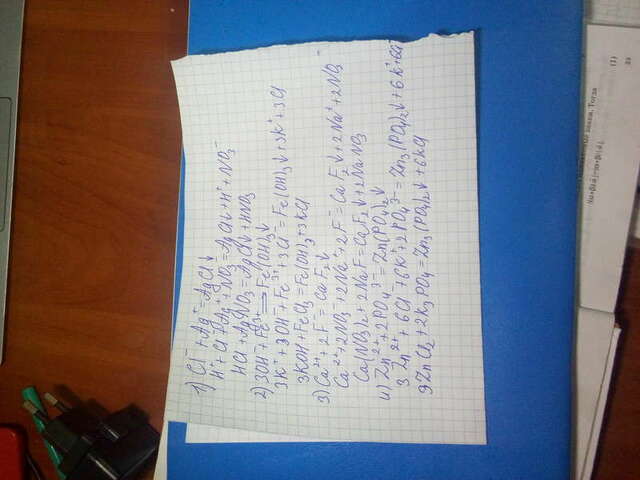 1) Cl⁻ + Ag⁺ = AgCl↓
H⁺ + Cl⁻ + Ag⁺ + NO₃⁻ = AgCl↓ + H⁺ + NO₃⁻
HCl + AgNO₃ = AgCl↓ + HNO₃
2) 3OH⁻ + Fe³⁺ → Fe(OH)₃↓
3K⁺ + 3OH⁻ + Fe³⁺ + 3Cl⁻ = Fe(OH)₃↓ + 3K⁺ + 3Cl
3KOH + FeCl₃ = Fe(OH)₃ + 3KCl
3) Ca²⁺ + 2F⁻ = CaF₂↓
Ca²⁺ + 2NO₃⁻ + 2Na⁺ + 2F⁻ = CaF₂↓ + 2Na⁺ + 2NO₃⁻
Ca(NO₃)₂ + 2NaF = CaF₂↓ + 2NaNO₃
4) Zn²⁺ + 2PO₄³⁻ = Zn(PO₄)₂↓
3Zn²⁺ + 6Cl⁻ + 6K⁺ + 2PO₄³⁻ = Zn₃(PO₄)₂↓ + 6K⁺ + 6Cl⁻
ZnCl₂ + 2K₃PO₄ = Zn₃(PO₄)₂↓ + 6KCl